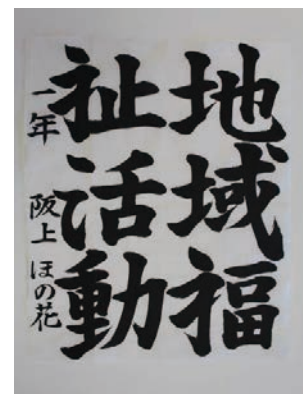 地域福
祉活動
一年 阪上 ほの花